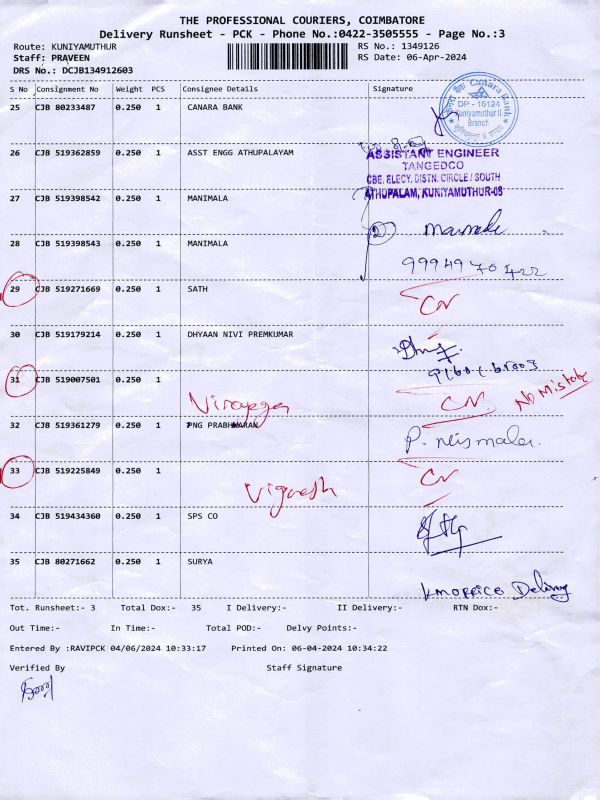 THE PROFESSIONAL COURIERS, COIMBATORE
Delivery Runsheet - PCK - Phone No.:0422-3505555 - Page No.:3
Route: KUNIYAMUTHUR
RS No.: 1349126
Staff: PRAVEEN
RS Date: 06-Apr-2024
DRS No.: DCJB134912603
S No Consignment No Weight PCS Consignee Details Signature
25 CJB 80233487 0.250 1 CANARA BANK
Canara Bank
DP - 16124
Kuniyamuthur II
Branch
26 CJB 519362859 0.250 1 ASST ENGG ATHUPALAYAM
ASSISTANT ENGINEER
TANGEDCO
CBE. ELECY. DISTN. CIRCLE / SOUTH
ATHUPALAM, KUNIYAMUTHUR-08
27 CJB 519398542 0.250 1 MANIMALA
2
28 CJB 519398543 0.250 1 MANIMALA
9994970422
29 CJB 519271669 0.250 1 SATH
CN
30 CJB 519179214 0.250 1 DHYAAN NIVI PREMKUMAR
31 CJB 519007501 0.250 1
CN No Mistake
32 CJB 519361279 0.250 1 PNG PRABHHARAN
33 CJB 519225849 0.250 1
Vignesh
CN
34 CJB 519434360 0.250 1 SPS CO
35 CJB 80271662 0.250 1 SURYA
Delivery
Tot. Runsheet:- 3 Total Dox:- 35 I Delivery:- II Delivery:- RTN Dox:-
Out Time:- In Time:- Total POD:- Delvy Points:-
Entered By :RAVIPCK 04/06/2024 10:33:17 Printed On: 06-04-2024 10:34:22
Verified By Staff Signature